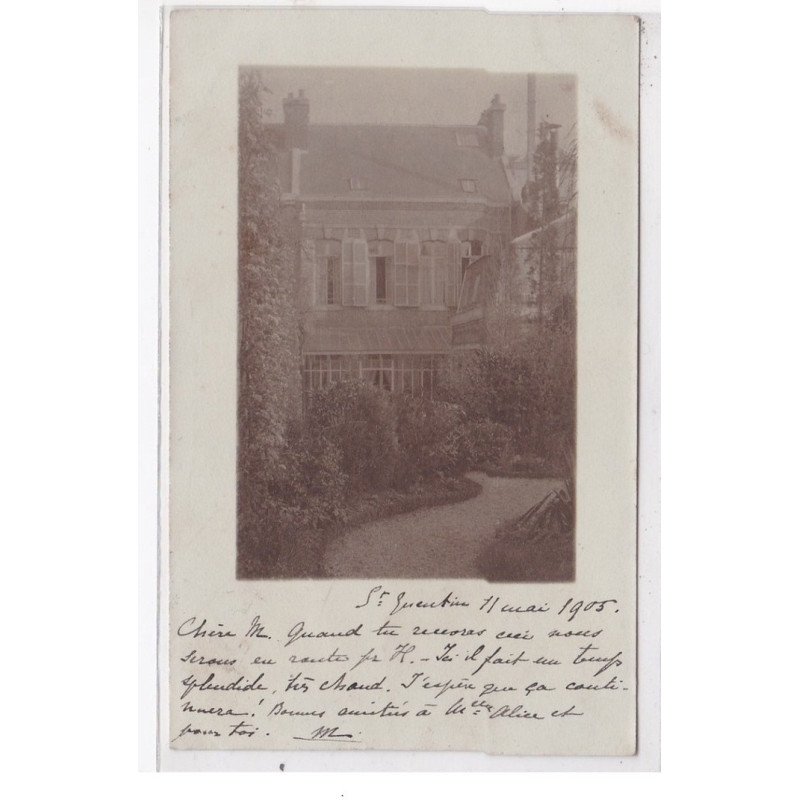 St Quentin 11 mai 1905.
Chère M. Quand tu recevras ceci nous
serons en route pr H. - Ici il fait un temps
splendide, très chaud. J'espère que ça conti-
nuera! Bonnes amitiés à Mlle Alice et
pour toi. M.